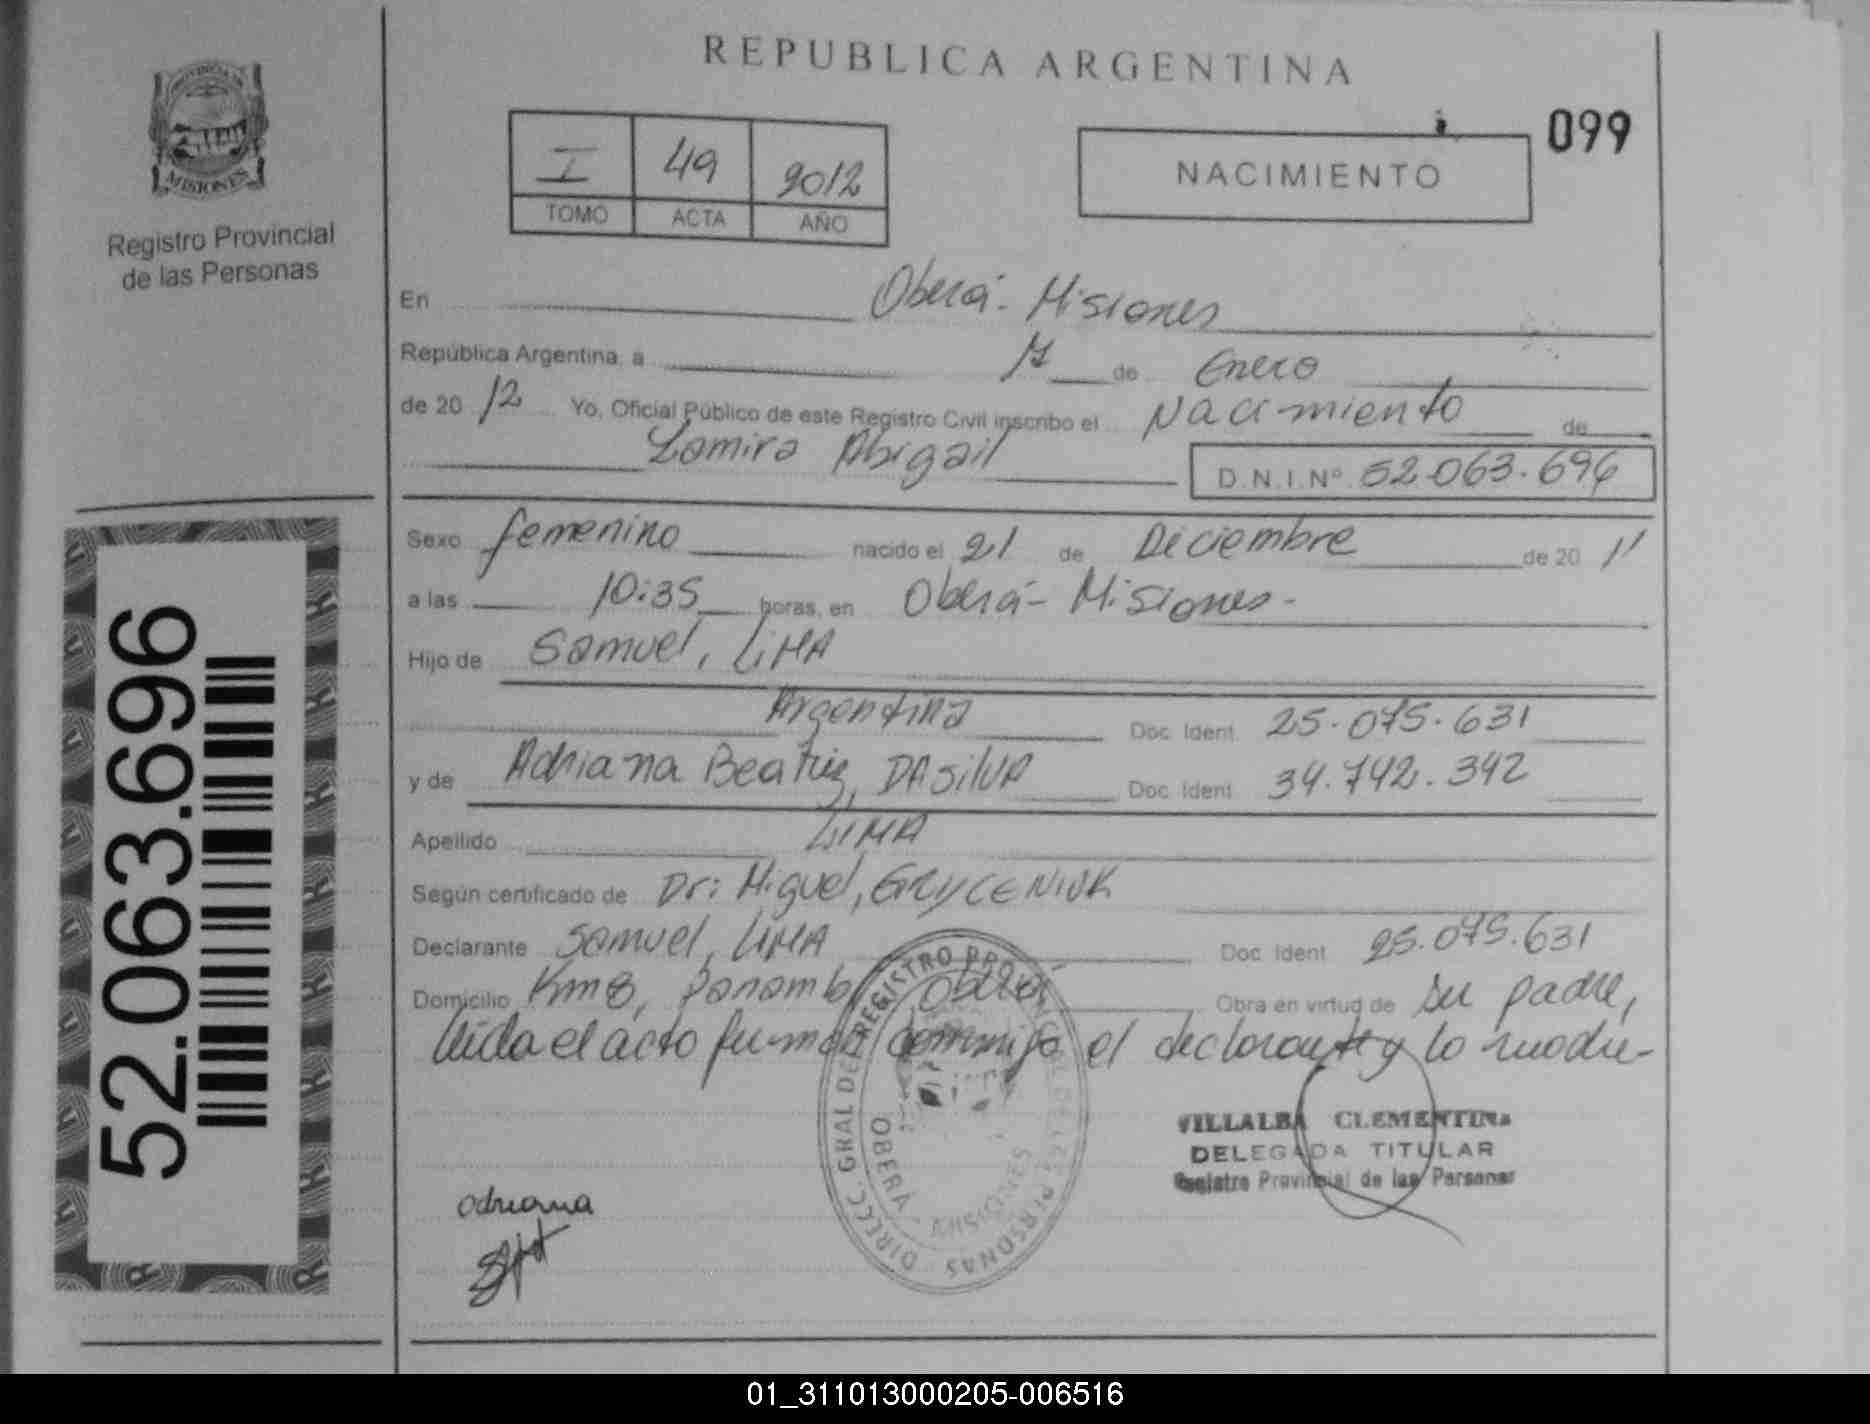 REPUBLICA ARGENTINA
PROVINCIA DE
MISIONES
Registro Provincial
de las Personas
I 49 2012
TOMO ACTA AÑO
NACIMIENTO
099
En Oberá - Misiones
República Argentina, a de Enero
de 20 12 Yo, Oficial Público de este Registro Civil inscribo el Nacimiento de
Abigail D.N.I.Nº 52.063.696
Sexo femenino nacido el 21 de Diciembre de 20 11
a las 10:35 horas, en Oberá - Misiones -
Hijo de Samuel, LIMA
Argentina Doc. Ident. 25.075.631
y de Adriana Beatriz, DASILVA Doc. Ident. 34.742.342
Apellido LIMA
Según certificado de Dr: Miguel,
Declarante Samuel, LIMA Doc. Ident. 25.075.631
Domicilio Km8, Panambi Oberá Obra en virtud de su padre,
leida el acta firman conmigo el declarante y la madre-
DIRECC. GRAL DEL REGISTRO PROVINCIAL DE LAS PERSONAS
OBERÁ - MISIONES
VILLALBA CLEMENTINA
DELEGADA TITULAR
Registro Provincial de las Personas
Adriana
52.063.696
01_311013000205-006516